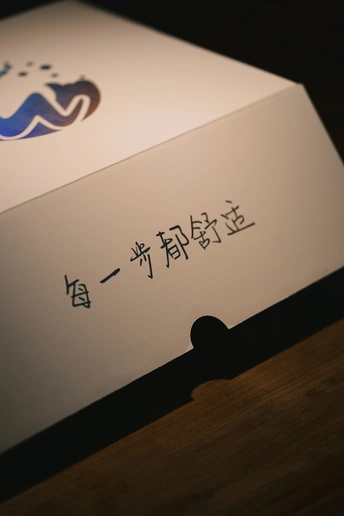 每一步都舒适